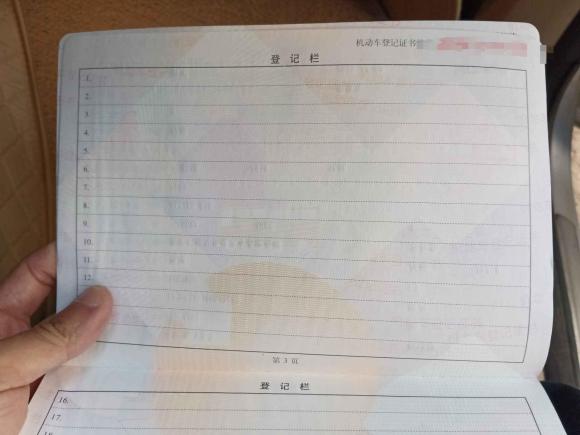 机动车登记证书
登 记 栏
1.
2.
3.
4.
5.
6.
7.
8.
9.
10.
11.
12.
第 3 页
登 记 栏
16.
17.
18.